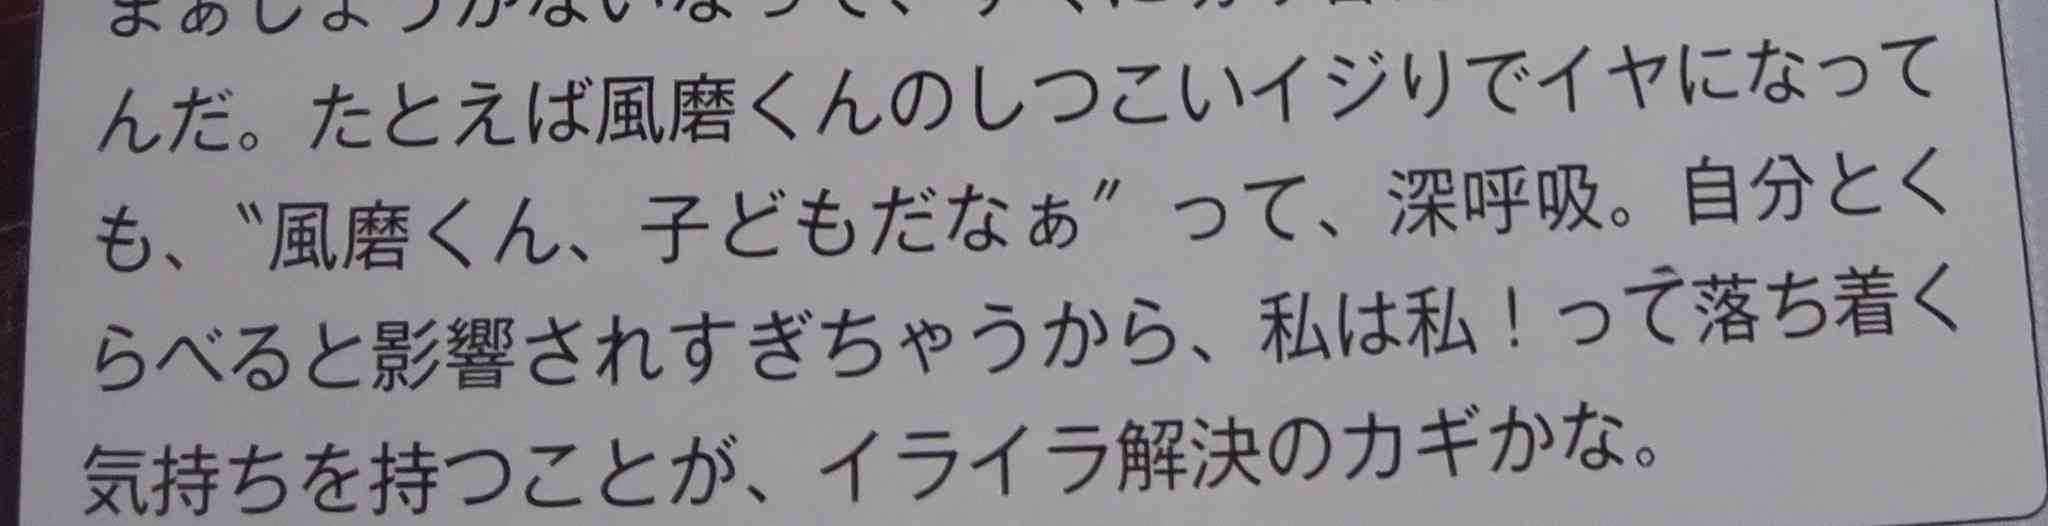 まぁしょうがないなって、すぐに
んだ。たとえば風磨くんのしつこいイジりでイヤになって
も、〝風磨くん、子どもだなぁ〟って、深呼吸。自分とく
らべると影響されすぎちゃうから、私は私！って落ち着く
気持ちを持つことが、イライラ解決のカギかな。